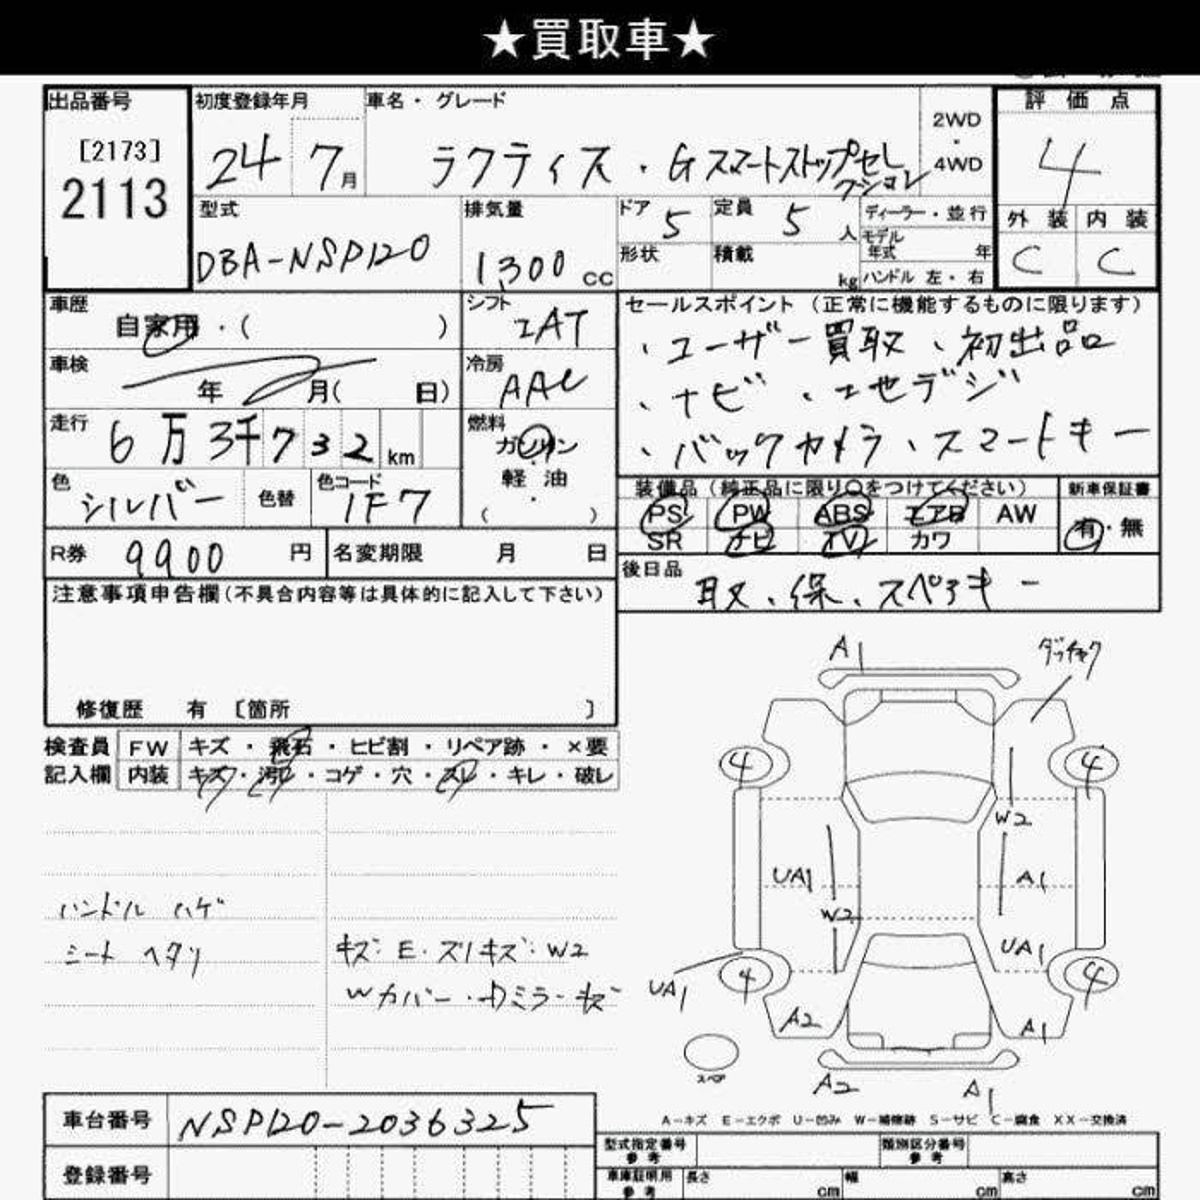 ★買取車★
出品番号
[2173]
2113
初度登録年月
24 7月
車名・グレード
ラクティス・Gスマートストップセレクション
2WD
・
4WD
評価点
4
外装 内装
C C
型式
DBA-NSP120
排気量
1,300 cc
ドア 5
定員 5人
形状
積載 kg
ディーラー・並行
モデル年式 年
ハンドル 左・右
車歴
自家用・( )
シフト
IAT
車検
年 月( 日)
冷房
AAC
走行
6万3千732km
燃料
ガソリン
軽・油
・
( )
色
シルバー
色替
色コード
1F7
R券 9900 円
名変期限 月 日
セールスポイント (正常に機能するものに限ります)
・ユーザー買取、初出品
・ナビ・地デジ
・バックカメラ・スマートキー
装備品(純正品に限り○をつけてください)
PS PW ABS エアB AW
SR ナビ TV カワ
新車保証書
有・無
後日品
取、保、スペアキー
注意事項申告欄(不具合内容等は具体的に記入して下さい)
修復歴 有 〔箇所 〕
検査員
記入欄
FW キズ・飛石・ヒビ割・リペア跡・×要
内装 キズ・汚れ・コゲ・穴・スレ・キレ・破レ
ハンドル ハゲ
シート ヘタリ
キズ:E・ズリキズ:W2
Wカバー・ミラーキズ
A1
4 4
W2
UA1 A1
W2
UA1
UA1 4 4
A2 A1
スペア
A2 A1
A-キズ E-エクボ U-凹み W-補修跡 S-サビ C-腐食 XX-交換済
車台番号 NSP120-2036325
登録番号
型式指定番号
参考
類別区分番号
参考
車庫証明用
参考
長さ cm
幅 cm
高さ cm